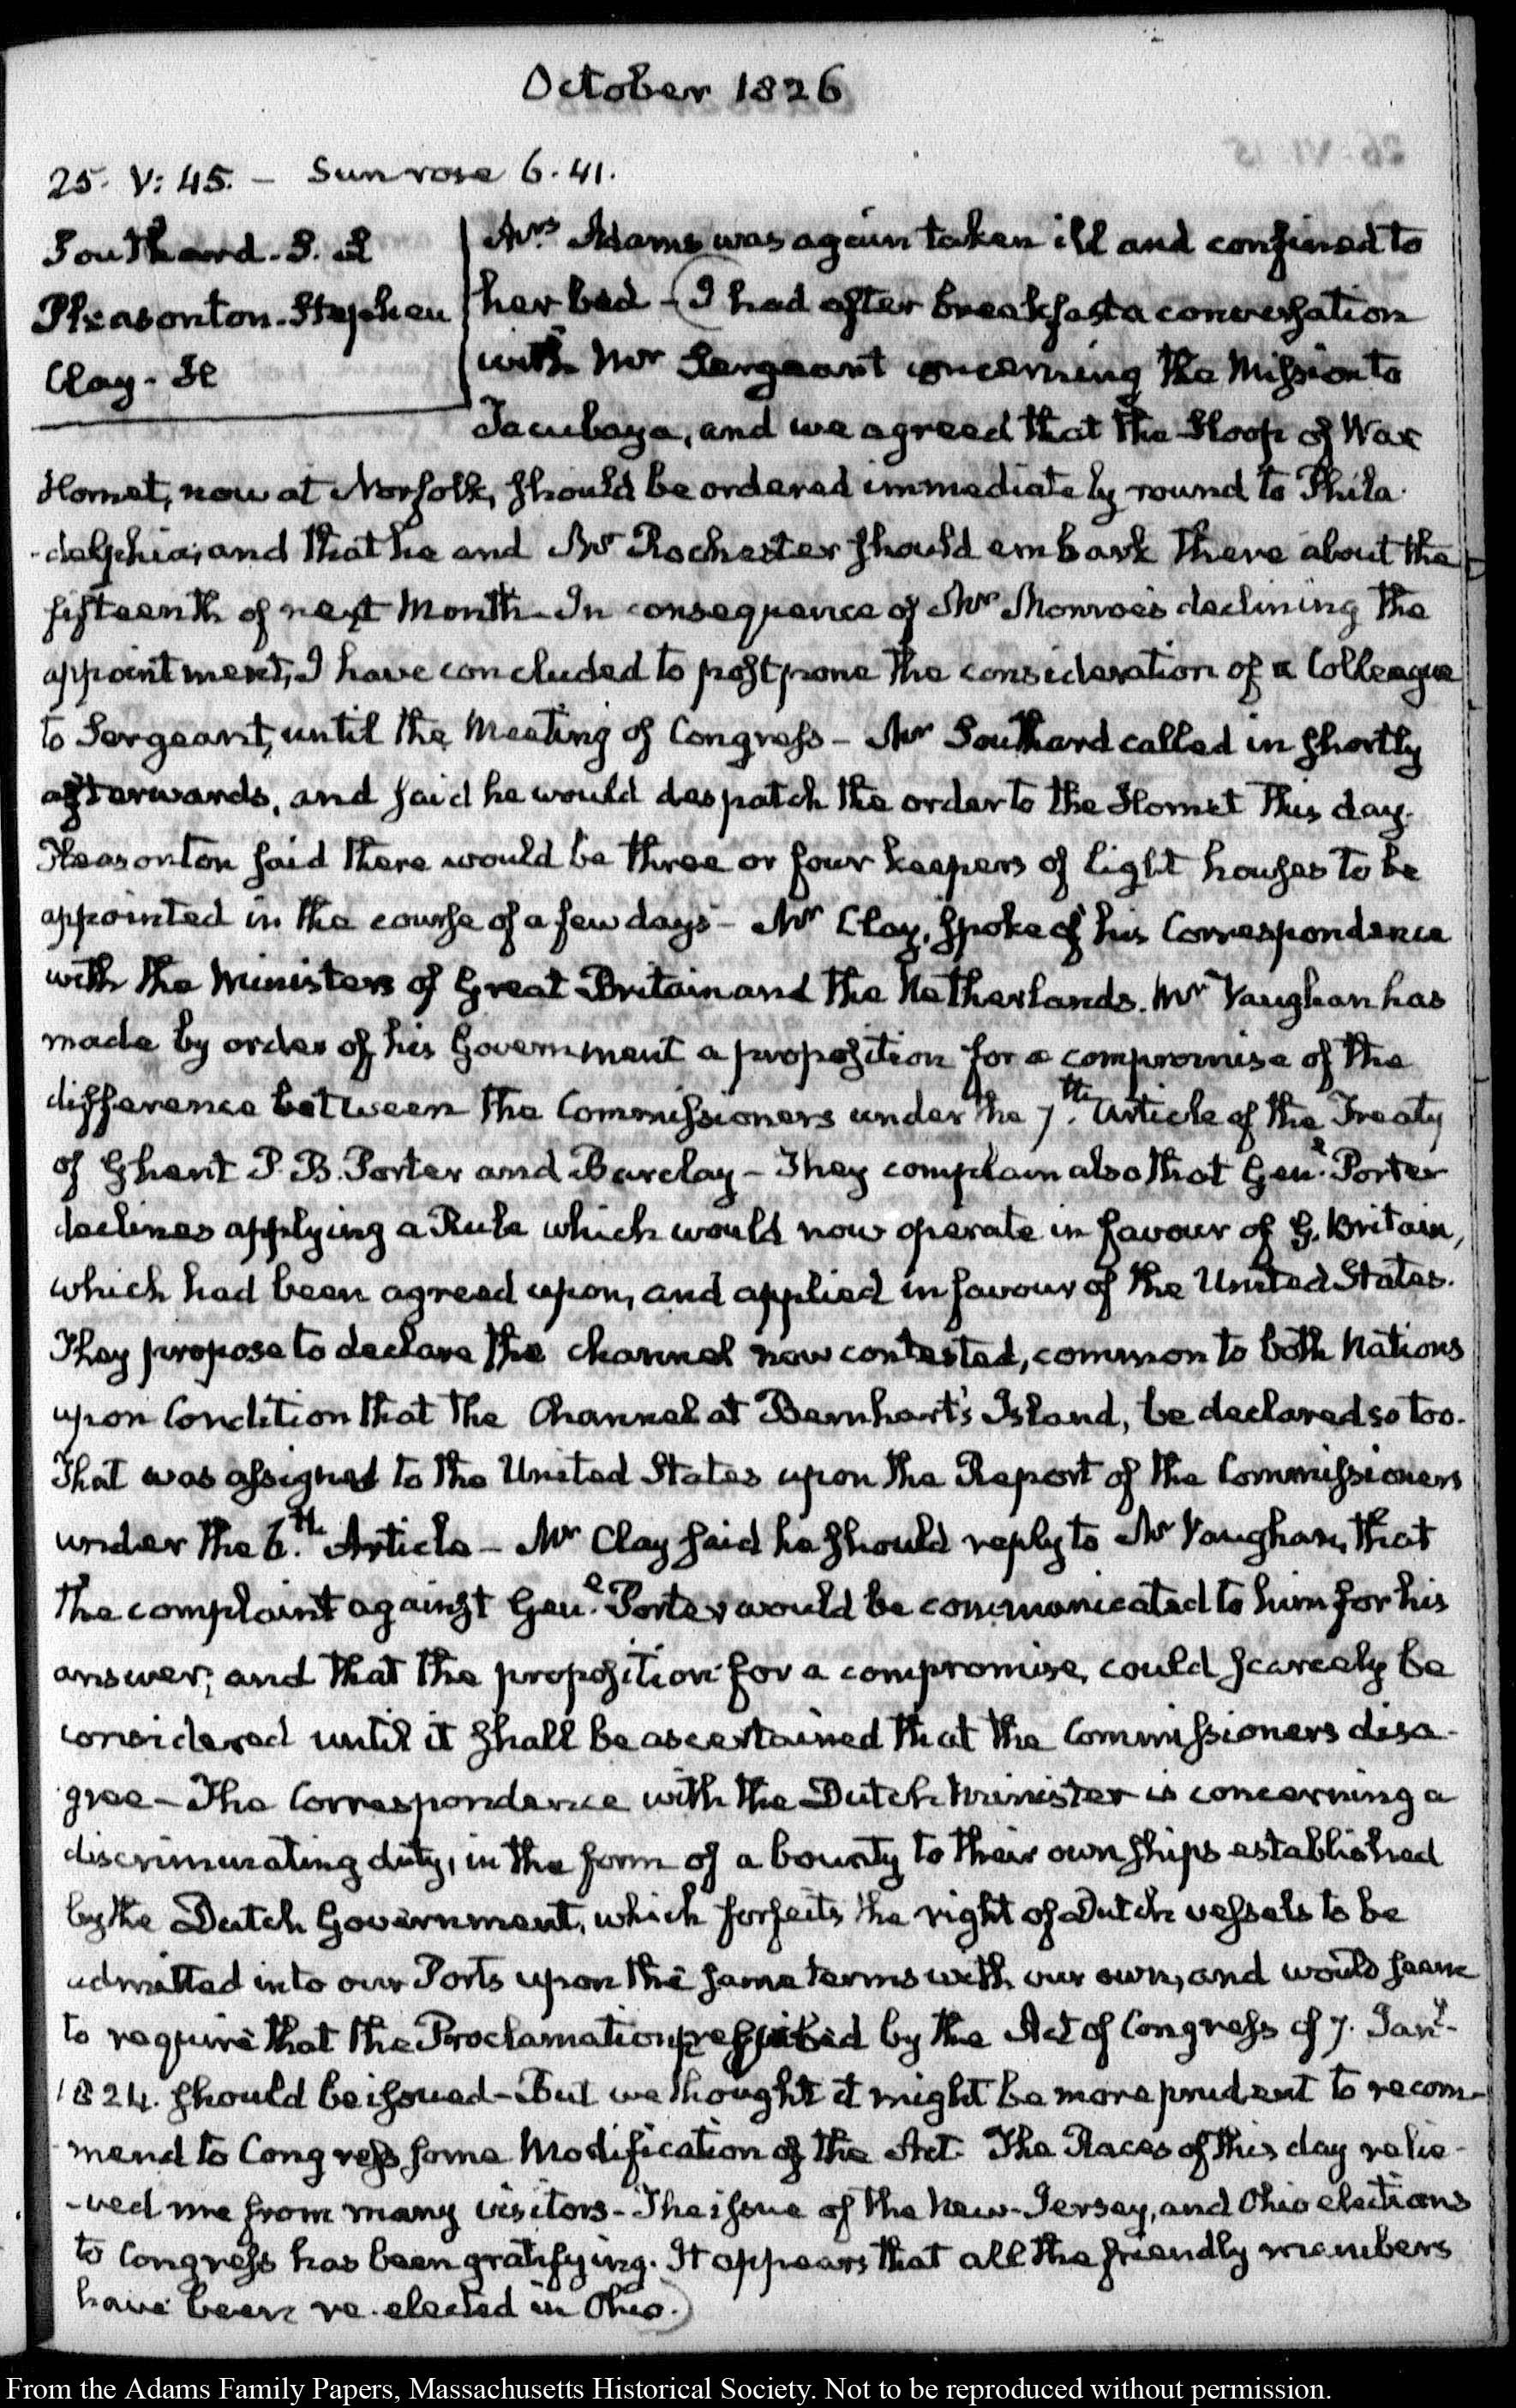 October 1826
25. V: 45. — Sun rose 6. 41.
Southard. S. L
Pleasonton. Stephen
Clay. H
Mrs Adams was again taken ill and confined to
her bed — (I had after breakfast a conversation
with Mr Sergeant concerning the Mission to
Tacubaya, and we agreed that the Sloop of War
Hornet, now at Norfolk, should be ordered immediately round to Phila-
-delphia; and that he and Mr Rochester should embark there about the
fifteenth of next Month — In consequence of Mr Monroe's declining the
appointment, I have concluded to postpone the consideration of a Colleague
to Sergeant, until the Meeting of Congress — Mr Southard called in shortly
afterwards, and said he would despatch the order to the Hornet this day.
Pleasonton said there would be three or four keepers of light houses to be
appointed in the course of a few days — Mr Clay, spoke of his Correspondence
with the Ministers of Great Britain and the Netherlands. Mr Vaughan has
made by order of his Government a proposition for a compromise of the
difference between the Commissioners under the 7th. Article of the Treaty
of Ghent P. B. Porter and Barclay — They complain also that Genl. Porter
declines applying a Rule which would now operate in favour of G. Britain,
which had been agreed upon, and applied in favour of the United States.
They propose to declare the channel now contested, common to both Nations
upon Condition that the Channel at Barnhart's Island, be declared so too.
That was assigned to the United States upon the Report of the Commissioners
under the 6th. Article — Mr Clay said he should reply to Mr Vaughan, that
the complaint against Genl. Porter would be communicated to him for his
answer; and that the proposition for a compromise, could scarcely be
considered until it shall be ascertained that the Commissioners disa-
gree — The Correspondence with the Dutch Minister is concerning a
discriminating duty, in the form of a bounty to their own ships established
by the Dutch Government, which forfeits the right of Dutch vessels to be
admitted into our Ports upon the same terms with our own, and would seem
to require that the Proclamation prescribed by the Act of Congress of 7. Jany.
1824. should be issued — But we thought it might be more prudent to recom-
mend to Congress some Modification of the Act. The Races of this day relie-
-ved me from many visitors — The issue of the New-Jersey, and Ohio elections
to Congress has been gratifying. It appears that all the friendly members
have been re-elected in Ohio.)
From the Adams Family Papers, Massachusetts Historical Society. Not to be reproduced without permission.